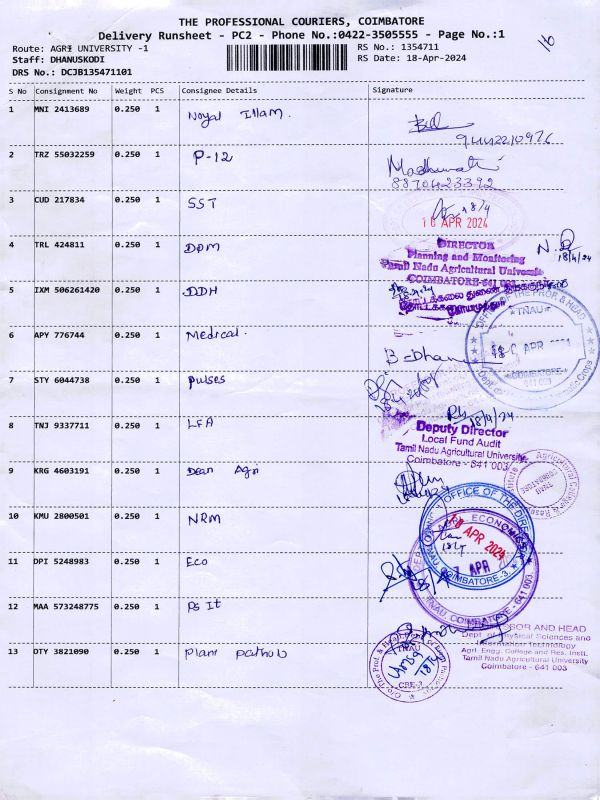 THE PROFESSIONAL COURIERS, COIMBATORE
Delivery Runsheet - PC2 - Phone No.:0422-3505555 - Page No.:1
16
Route: AGRI UNIVERSITY -1
RS No.: 1354711
Staff: DHANUSKODI
RS Date: 18-Apr-2024
DRS No.: DCJB135471101
S No Consignment No Weight PCS Consignee Details Signature
1 MNI 2413689 0.250 1 Noyal Illam.
9442210976
2 TRZ 55032259 0.250 1 P-12
8870423392
3 CUD 217834 0.250 1 SST
18/4
18 APR 2024
4 TRL 424811 0.250 1 DPM
DIRECTOR
Planning and Monitoring
Tamil Nadu Agricultural University
COIMBATORE-641 003
18/4/24
5 IXM 506261420 0.250 1 DDH
OFFICE OF THE PROF & HEAD
TNAU
6 APY 776744 0.250 1 Medical.
APR
COIMBATORE
641 003
7 STY 6044738 0.250 1 Pulses
8 TNJ 9337711 0.250 1 LFA
18/4/24
Deputy Director
Local Fund Audit
Tamil Nadu Agricultural University
Coimbatore - 641 003
9 KRG 4603191 0.250 1 Dean Agri
Agricultural College &
TNAU
COIMBATORE
10 KMU 2800501 0.250 1 NRM
OFFICE OF THE
ECONOMICS
APR 2024
11 DPI 5248983 0.250 1 Eco
APR
TNAU, COIMBATORE-3
TNAU COIMBATORE - 641 003
12 MAA 573248775 0.250 1 PS It
PROF AND HEAD
Dept. of Physical Sciences and
Information Technology
Agrl. Engg. College and Res. Instt.
Tamil Nadu Agricultural University
Coimbatore - 641 003
13 OTY 3821090 0.250 1 Plant Patholo
O/o. The Prof & Head
TNAU
CBE-3